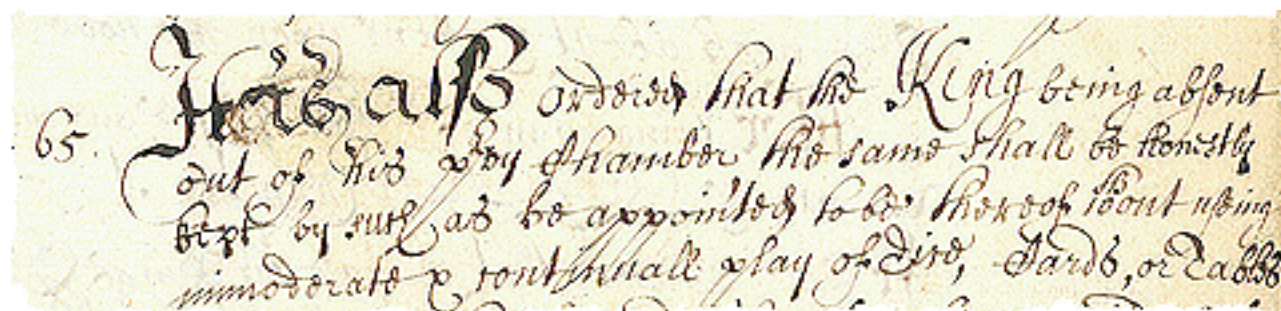 It is also ordered that the King being absent
65. out of his p'vy Chamber the same shall be honestly
kept by such as be appointed to be thereof wthout useing
immoderate & continuall play of Dice, Cards, or Tables